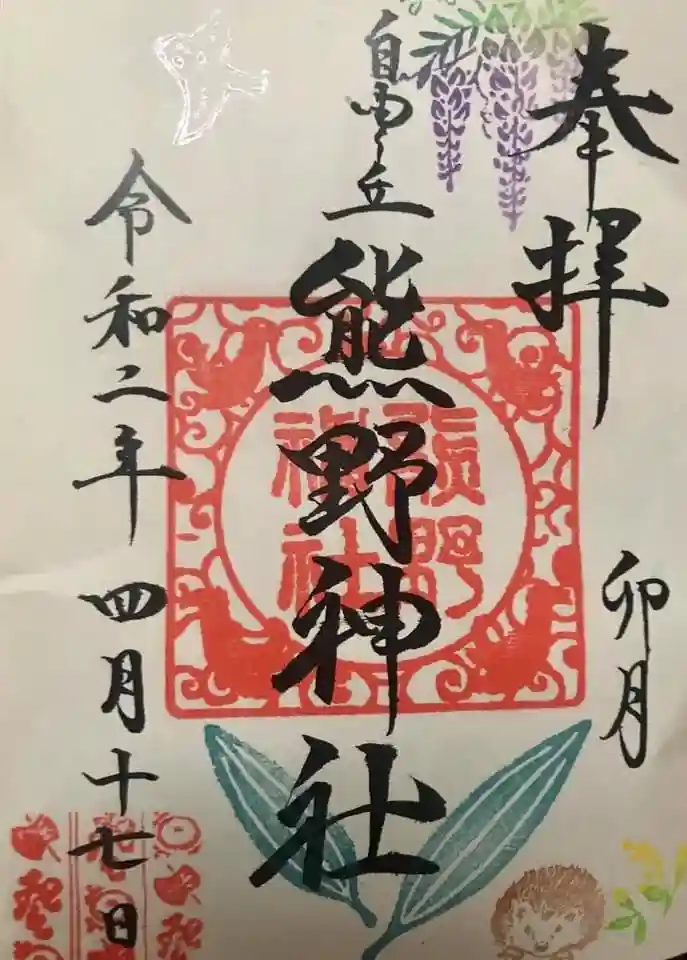 奉拝
卯月
自由ヶ丘
熊野神社
熊野
神社
令和二年四月十七日